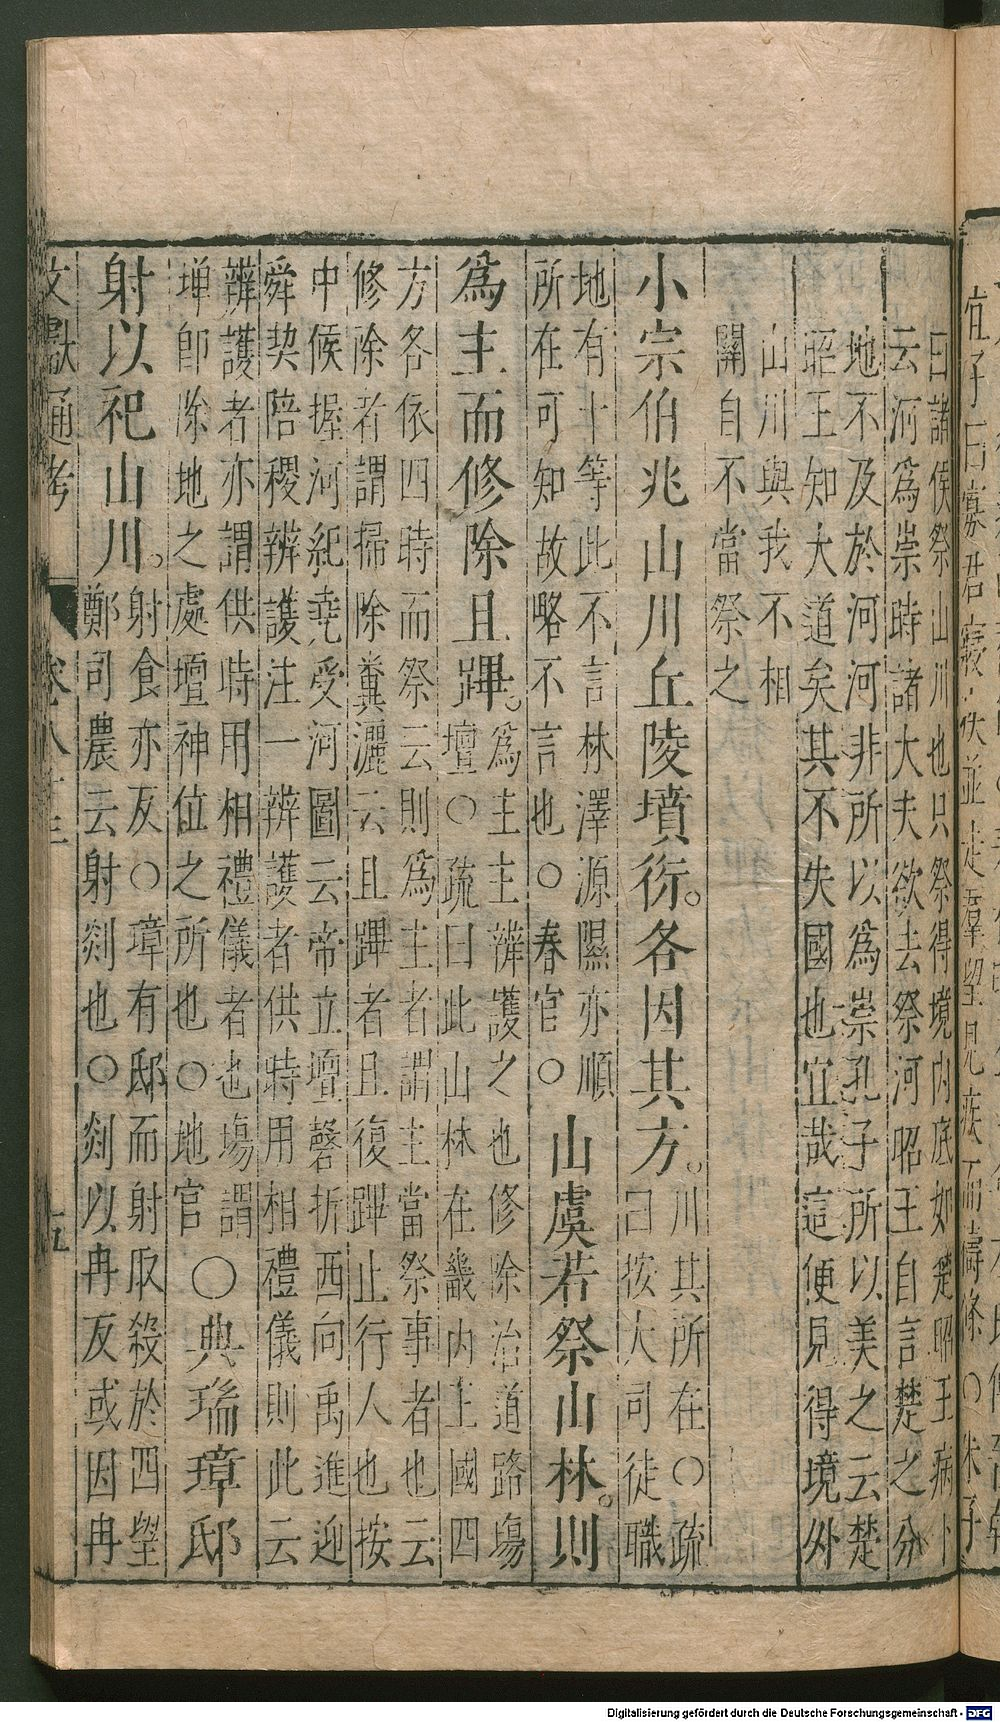 曰諸侯祭山川也只祭得境内底如楚昭王病卜
云河爲祟時諸大夫欲去祭河昭王自言楚之分
地不及於河河非所以爲祟孔子所以美之云楚
昭王知大道矣其不失國也宜哉這便見得境外
山川與我不相
關自不當祭之
小宗伯兆山川丘陵墳衍。各因其方。
川其所在〇疏
曰按大司徒職
地有十等此不言林澤源隰亦順
所在可知故略不言也〇春官〇
山虞若祭山林。則
爲主而修除且蹕。
爲主主辨護之也修除治道路塲
壇〇疏曰此山林在畿内王國四
方各依四時而祭云則爲主者謂主當祭事者也云
修除者謂掃除糞灑云且蹕者且復蹕止行人也按
中候握河紀堯受河圖云帝立壇磬折西向禹進迎
舜契陪稷辨護注一辨護者供時用相禮儀則此云
辨護者亦謂供時用相禮儀者也塲謂
墠卽除地之處壇神位之所也〇地官
〇典瑞璋邸
射以祀山川。
射食亦反〇璋有邸而射取殺於四望
鄭司農云射剡也〇剡以冉反或因冉
文獻通考
卷八十三
十五
Digitalisierung gefördert durch die Deutsche Forschungsgemeinschaft - DFG